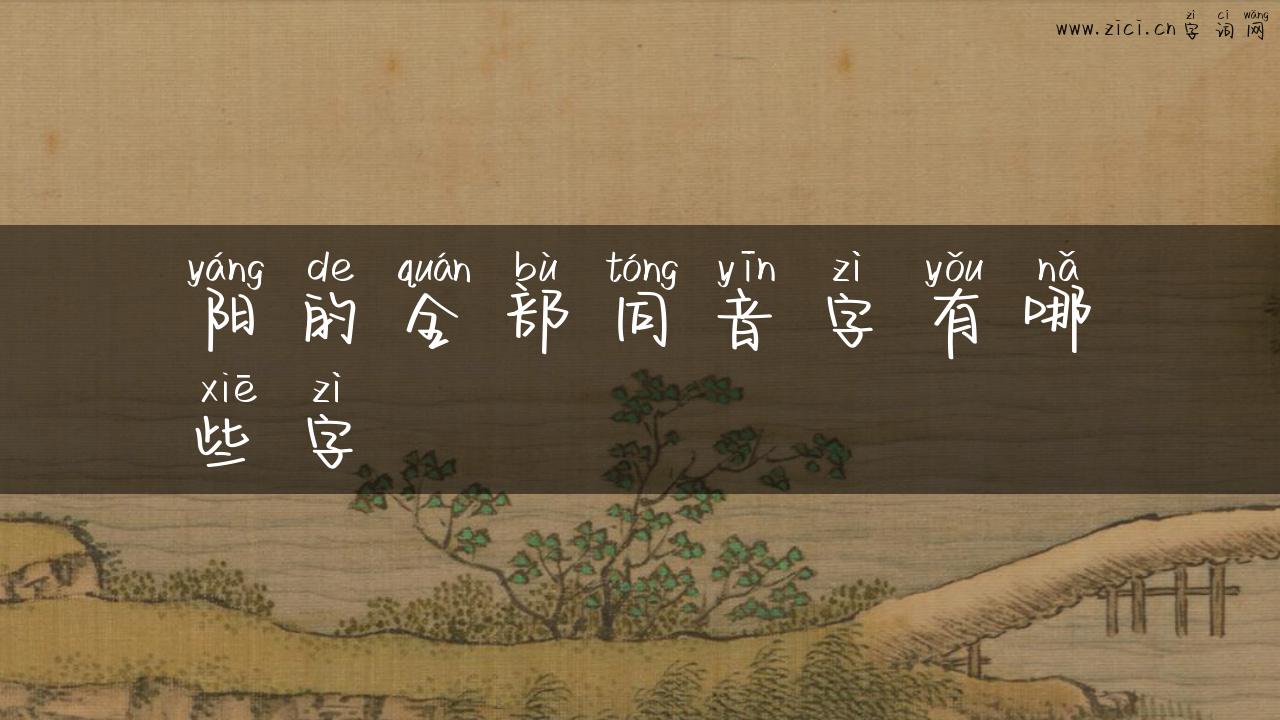 zì cí wǎng
www.zici.cn 字 词 网
yáng de quán bù tóng yīn zì yǒu nǎ
阳 的 全 部 同 音 字 有 哪
xiē zì
些 字